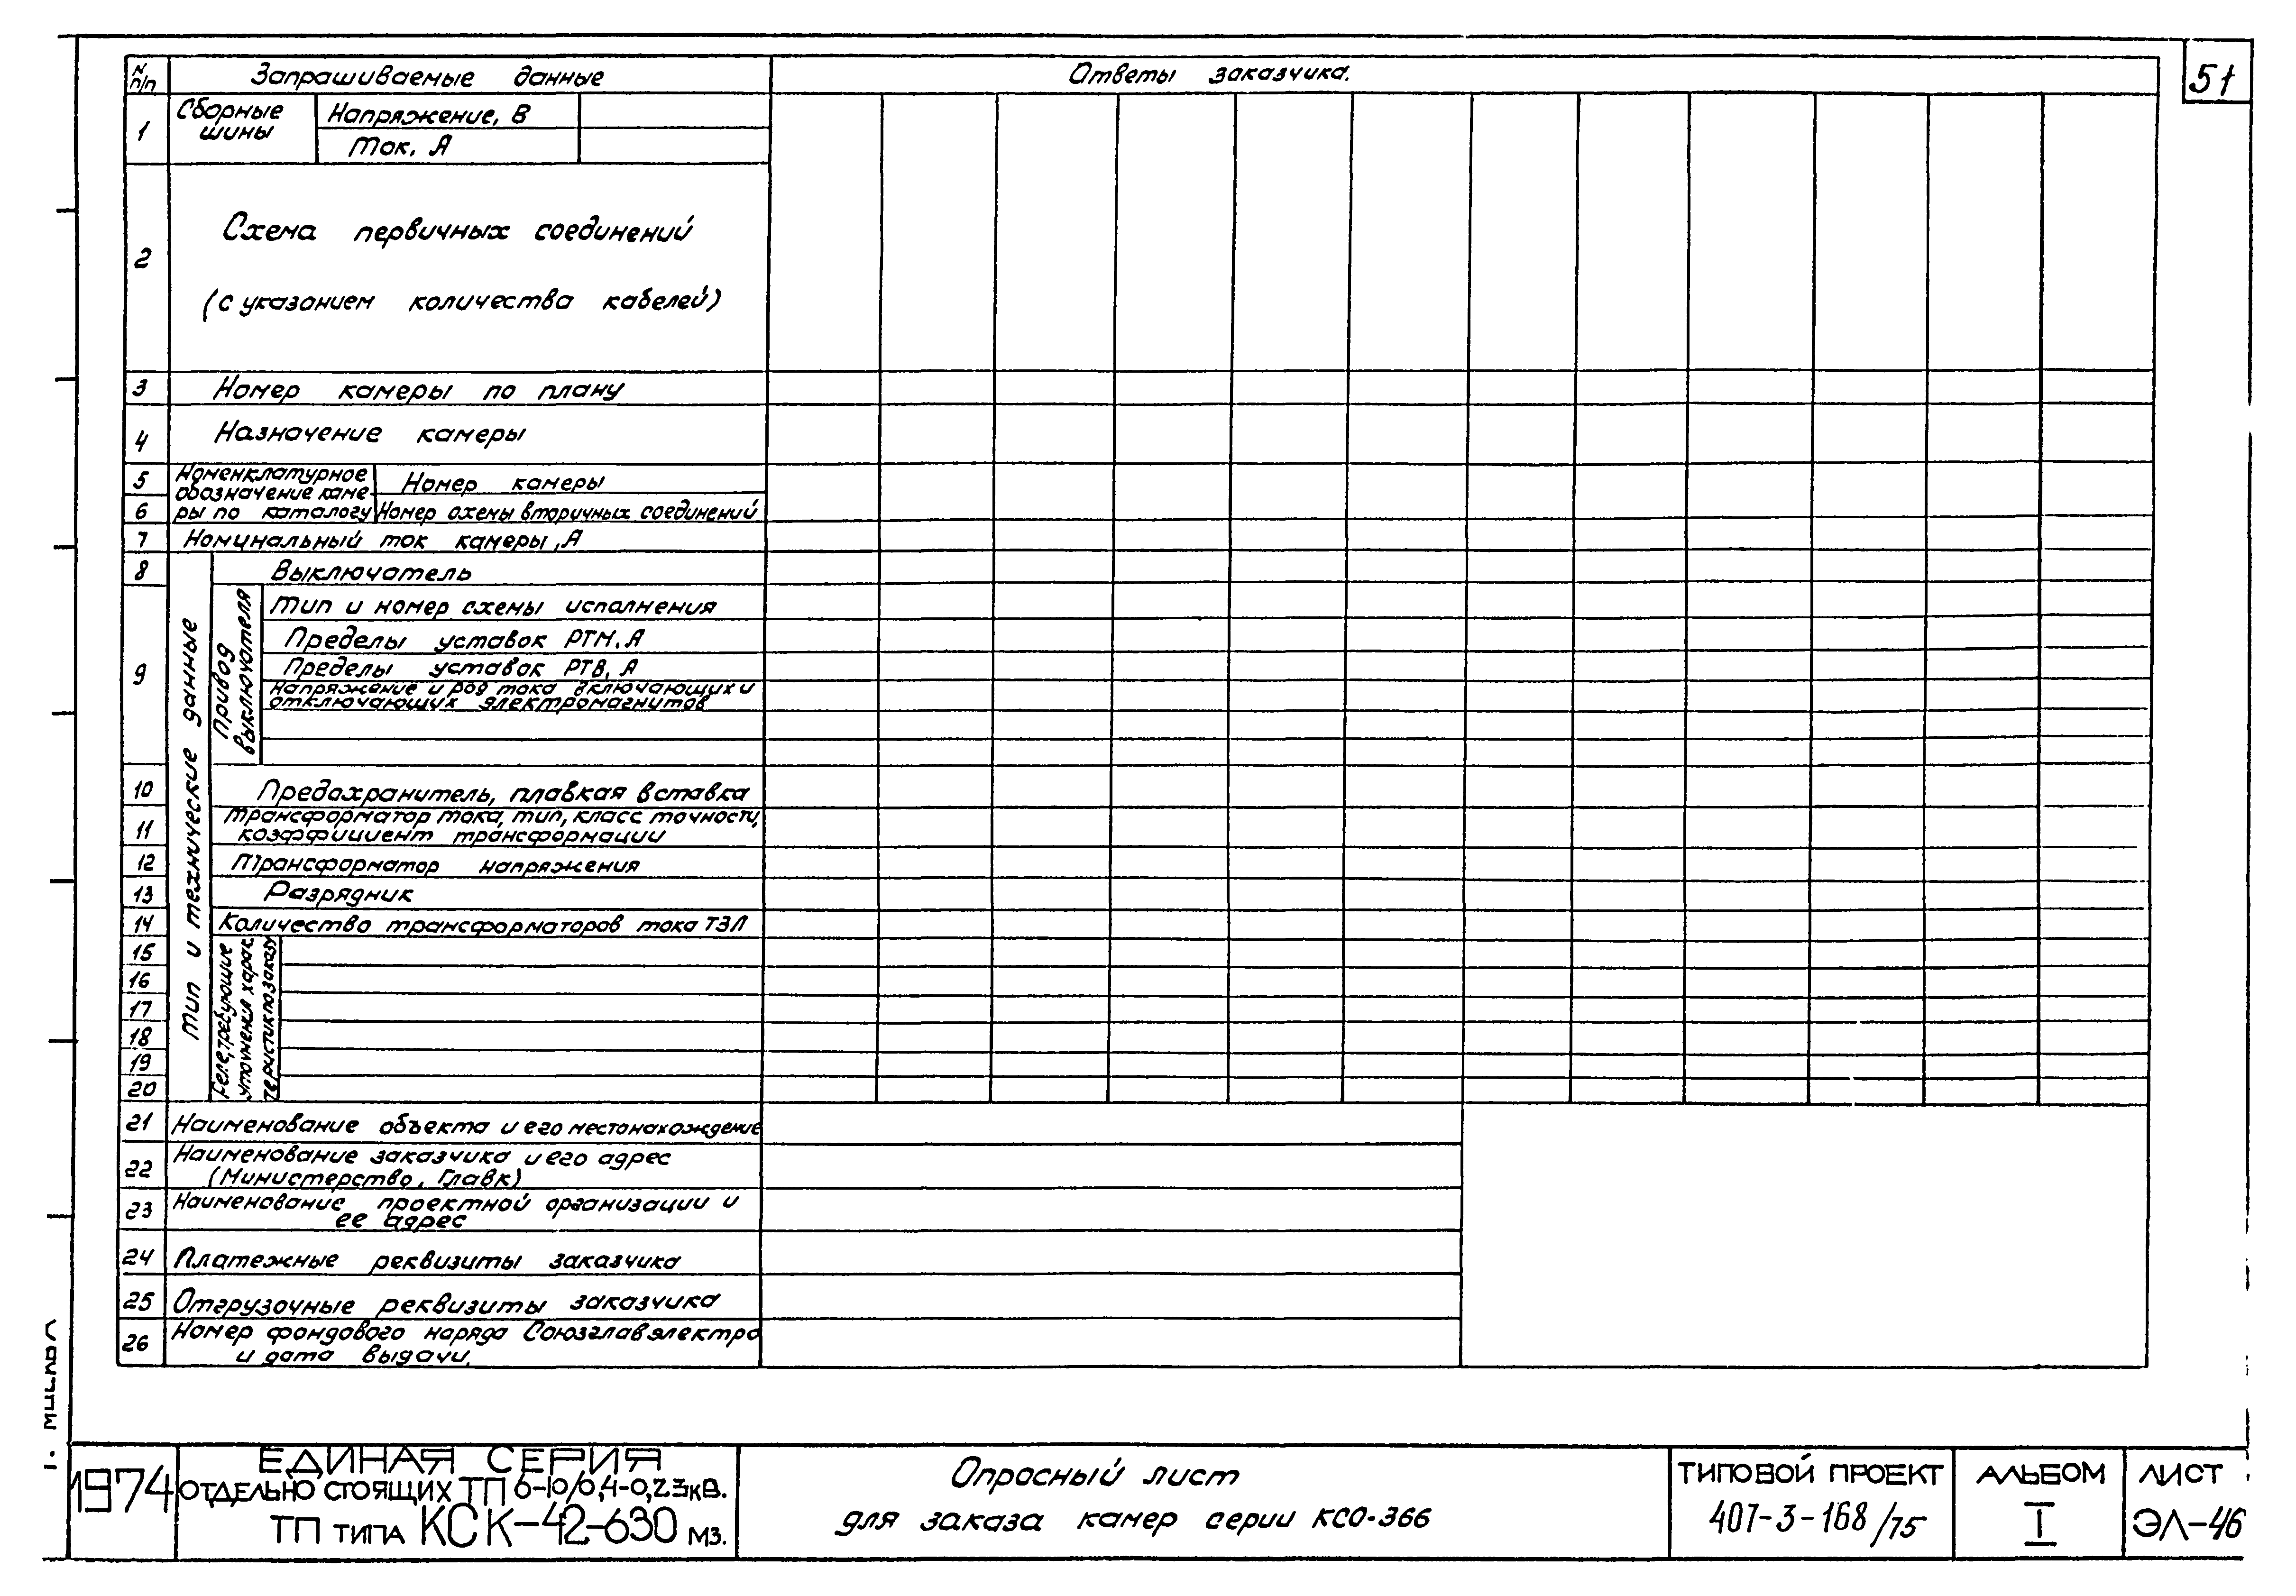 51
N п/п
Запрашиваемые данные
Ответы заказчика.
1
Сборные
шины
Напряжение, В
Ток, А
2
Схема первичных соединений
(с указанием количества кабелей)
3
Номер камеры по плану
4
Назначение камеры
5
Номенклатурное
обозначение каме-
ры по каталогу
Номер камеры
6
Номер схемы вторичных соединений
7
Номинальный ток камеры, А
Тип и технические данные
8
Выключатель
9
Привод
выключателя
Тип и номер схемы исполнения
Пределы уставок РТМ, А
Пределы уставок РТВ, А
Напряжение и род тока включающих и
отключающих электромагнитов
10
Предохранитель, плавкая вставка
11
Трансформатор тока, тип, класс точности,
коэффициент трансформации
12
Трансформатор напряжения
13
Разрядник
14
Количество трансформаторов тока ТЗЛ
15
16
17
18
19
20
Реле, требующие
уточнения харак
теристик по заказу
21
Наименование объекта и его местонахождение
22
Наименование заказчика и его адрес
(Министерство, Главк)
23
Наименование проектной организации и
ее адрес
24
Платежные реквизиты заказчика
25
Отгрузочные реквизиты заказчика
26
Номер фондового наряда Союзглавэлектро
и дата выдачи.
1974
ЕДИНАЯ СЕРИЯ
ОТДЕЛЬНО СТОЯЩИХ ТП 6-10/0,4-0,23кВ.
ТП ТИПА КСК-42-630 М3.
Опросный лист
для заказа камер серии КСО-366
ТИПОВОЙ ПРОЕКТ
407-3-168/75
АЛЬБОМ
I
ЛИСТ
ЭЛ-46